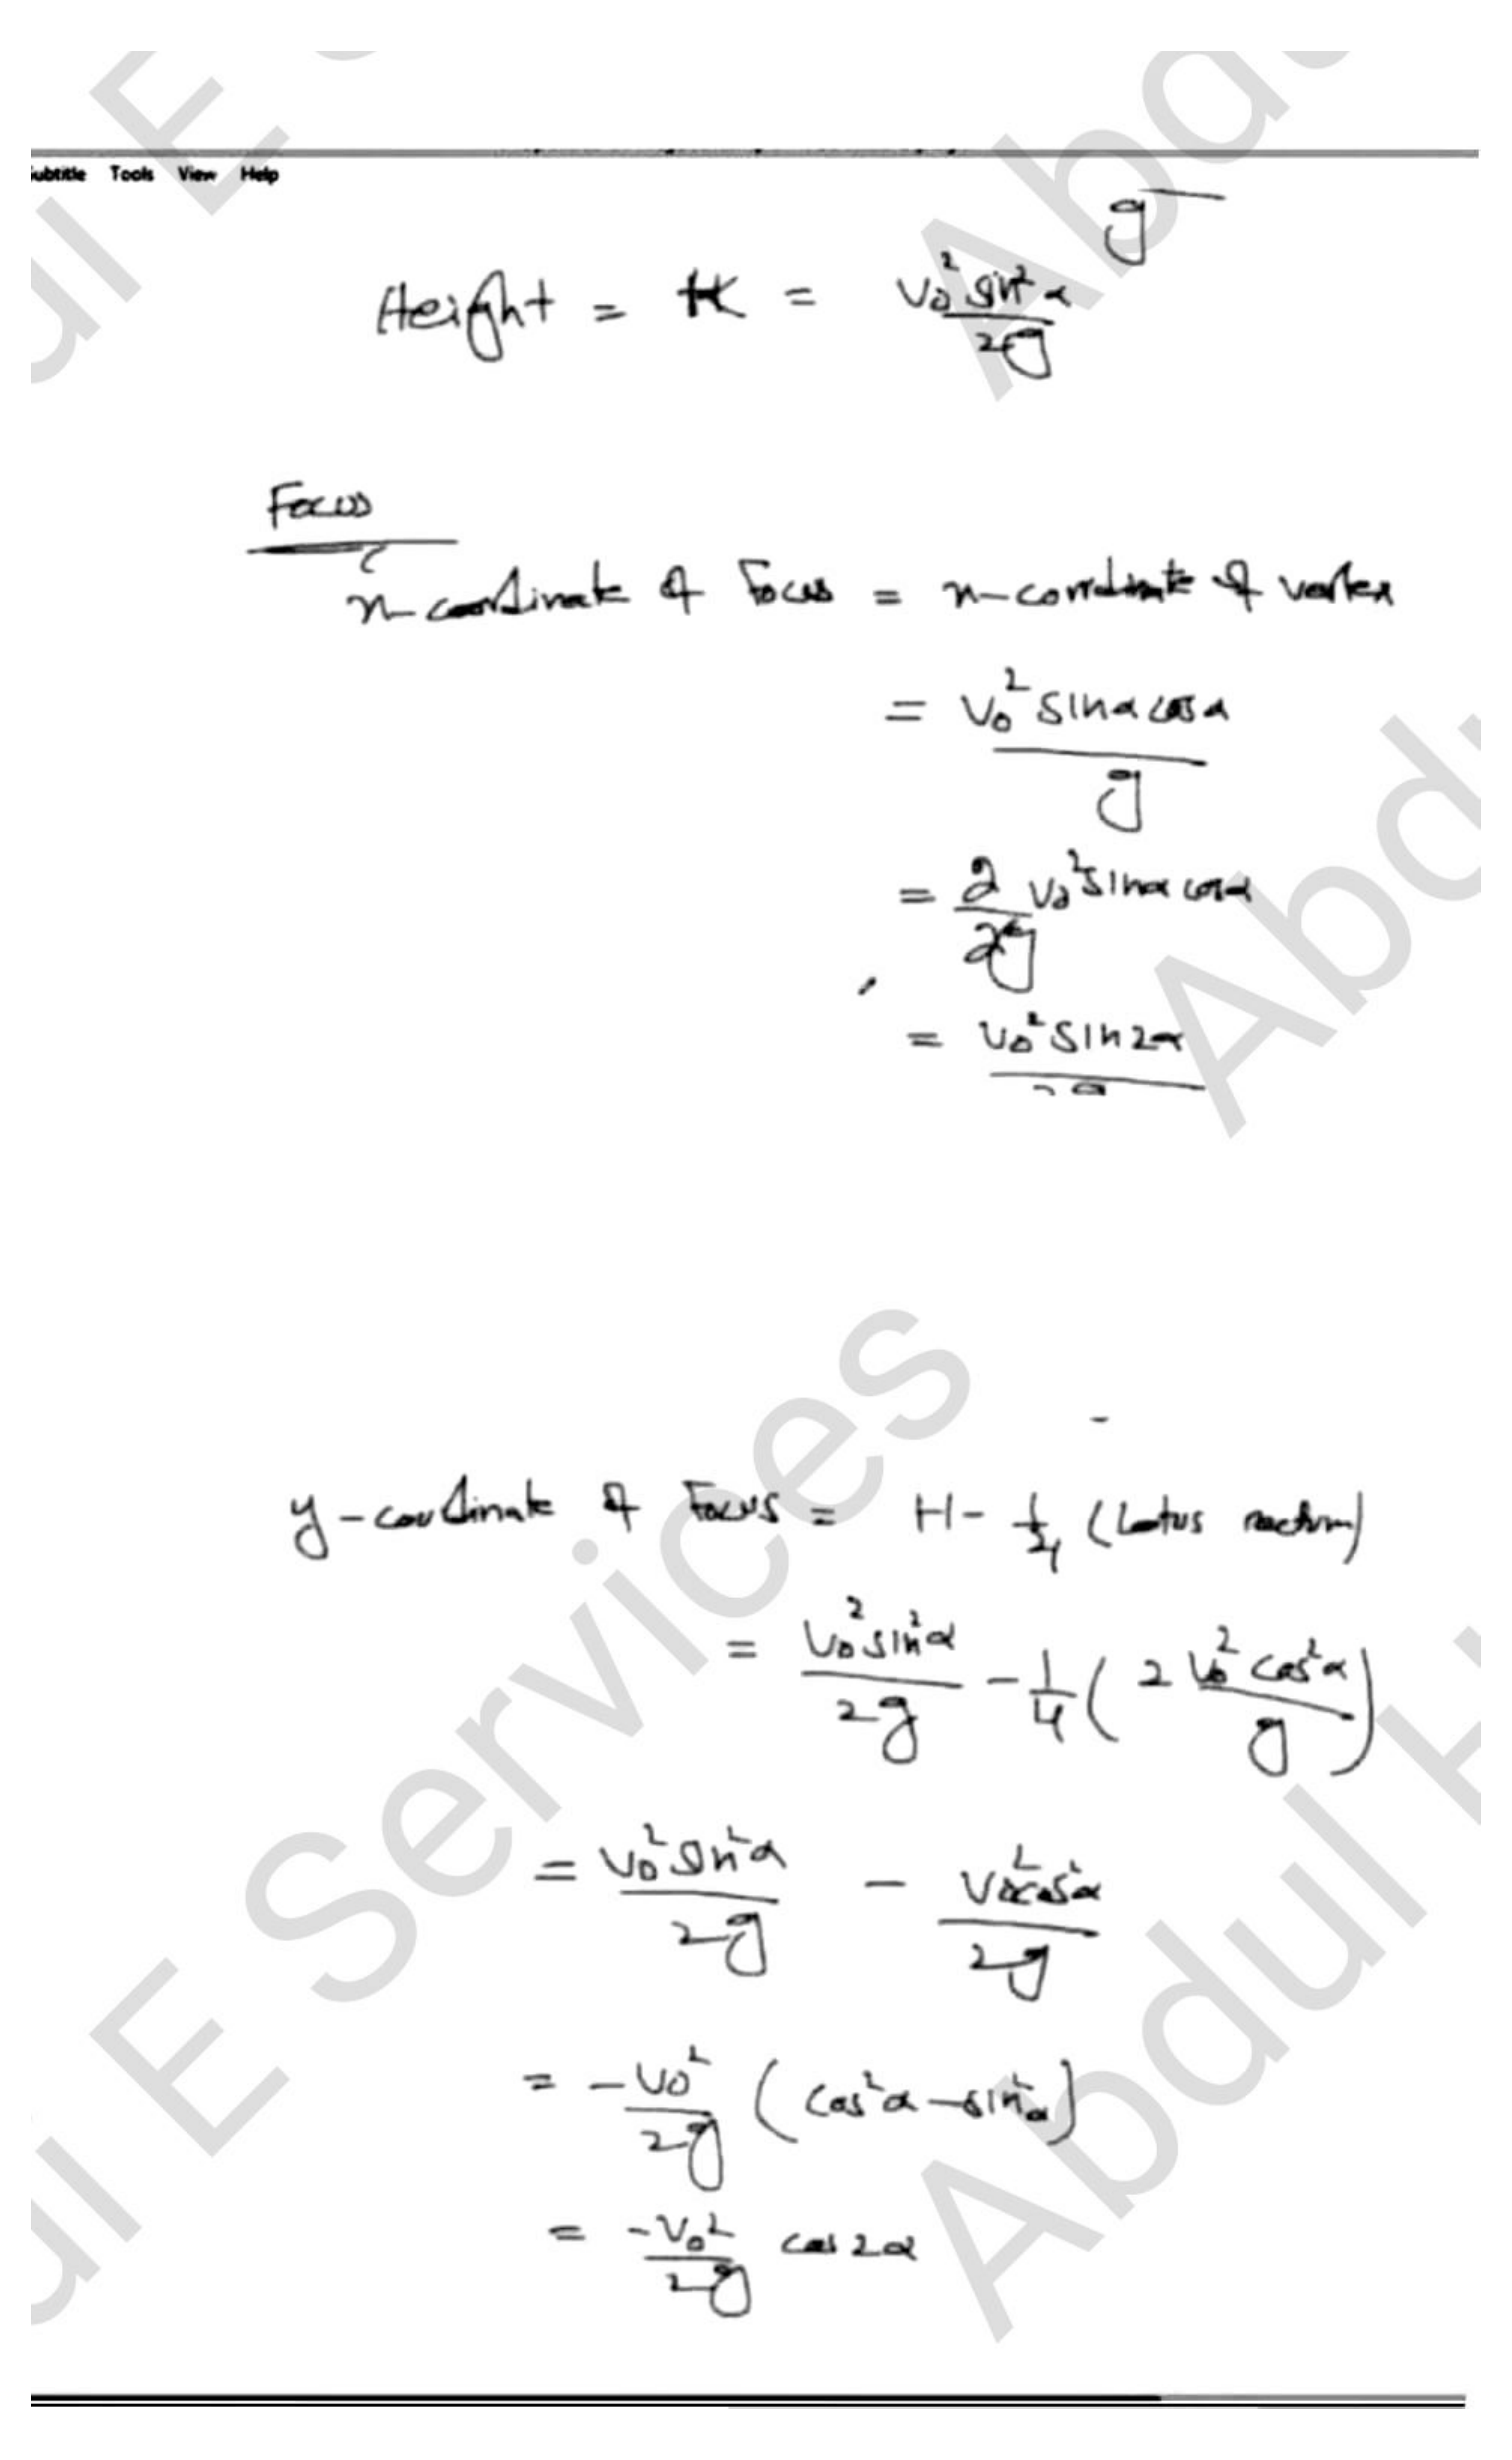 Subtitle Tools View Help
g
Height = H = V₀² sin²α / 2g
Focus
x-coordinate of Focus = x-coordinate of vertex
= V₀² sinα cosα / g
= 2/2g V₀² sinα cosα
= V₀² sin2α / 2g
y-coordinate of Focus = H - 1/4 (Latus rectum)
= V₀² sin²α / 2g - 1/4 ( 2 V₀² cos²α / g )
= V₀² sin²α / 2g - V₀² cos²α / 2g
= -V₀² / 2g ( cos²α - sin²α )
= -V₀² / 2g cos2α
Abdul E Services
Abdul